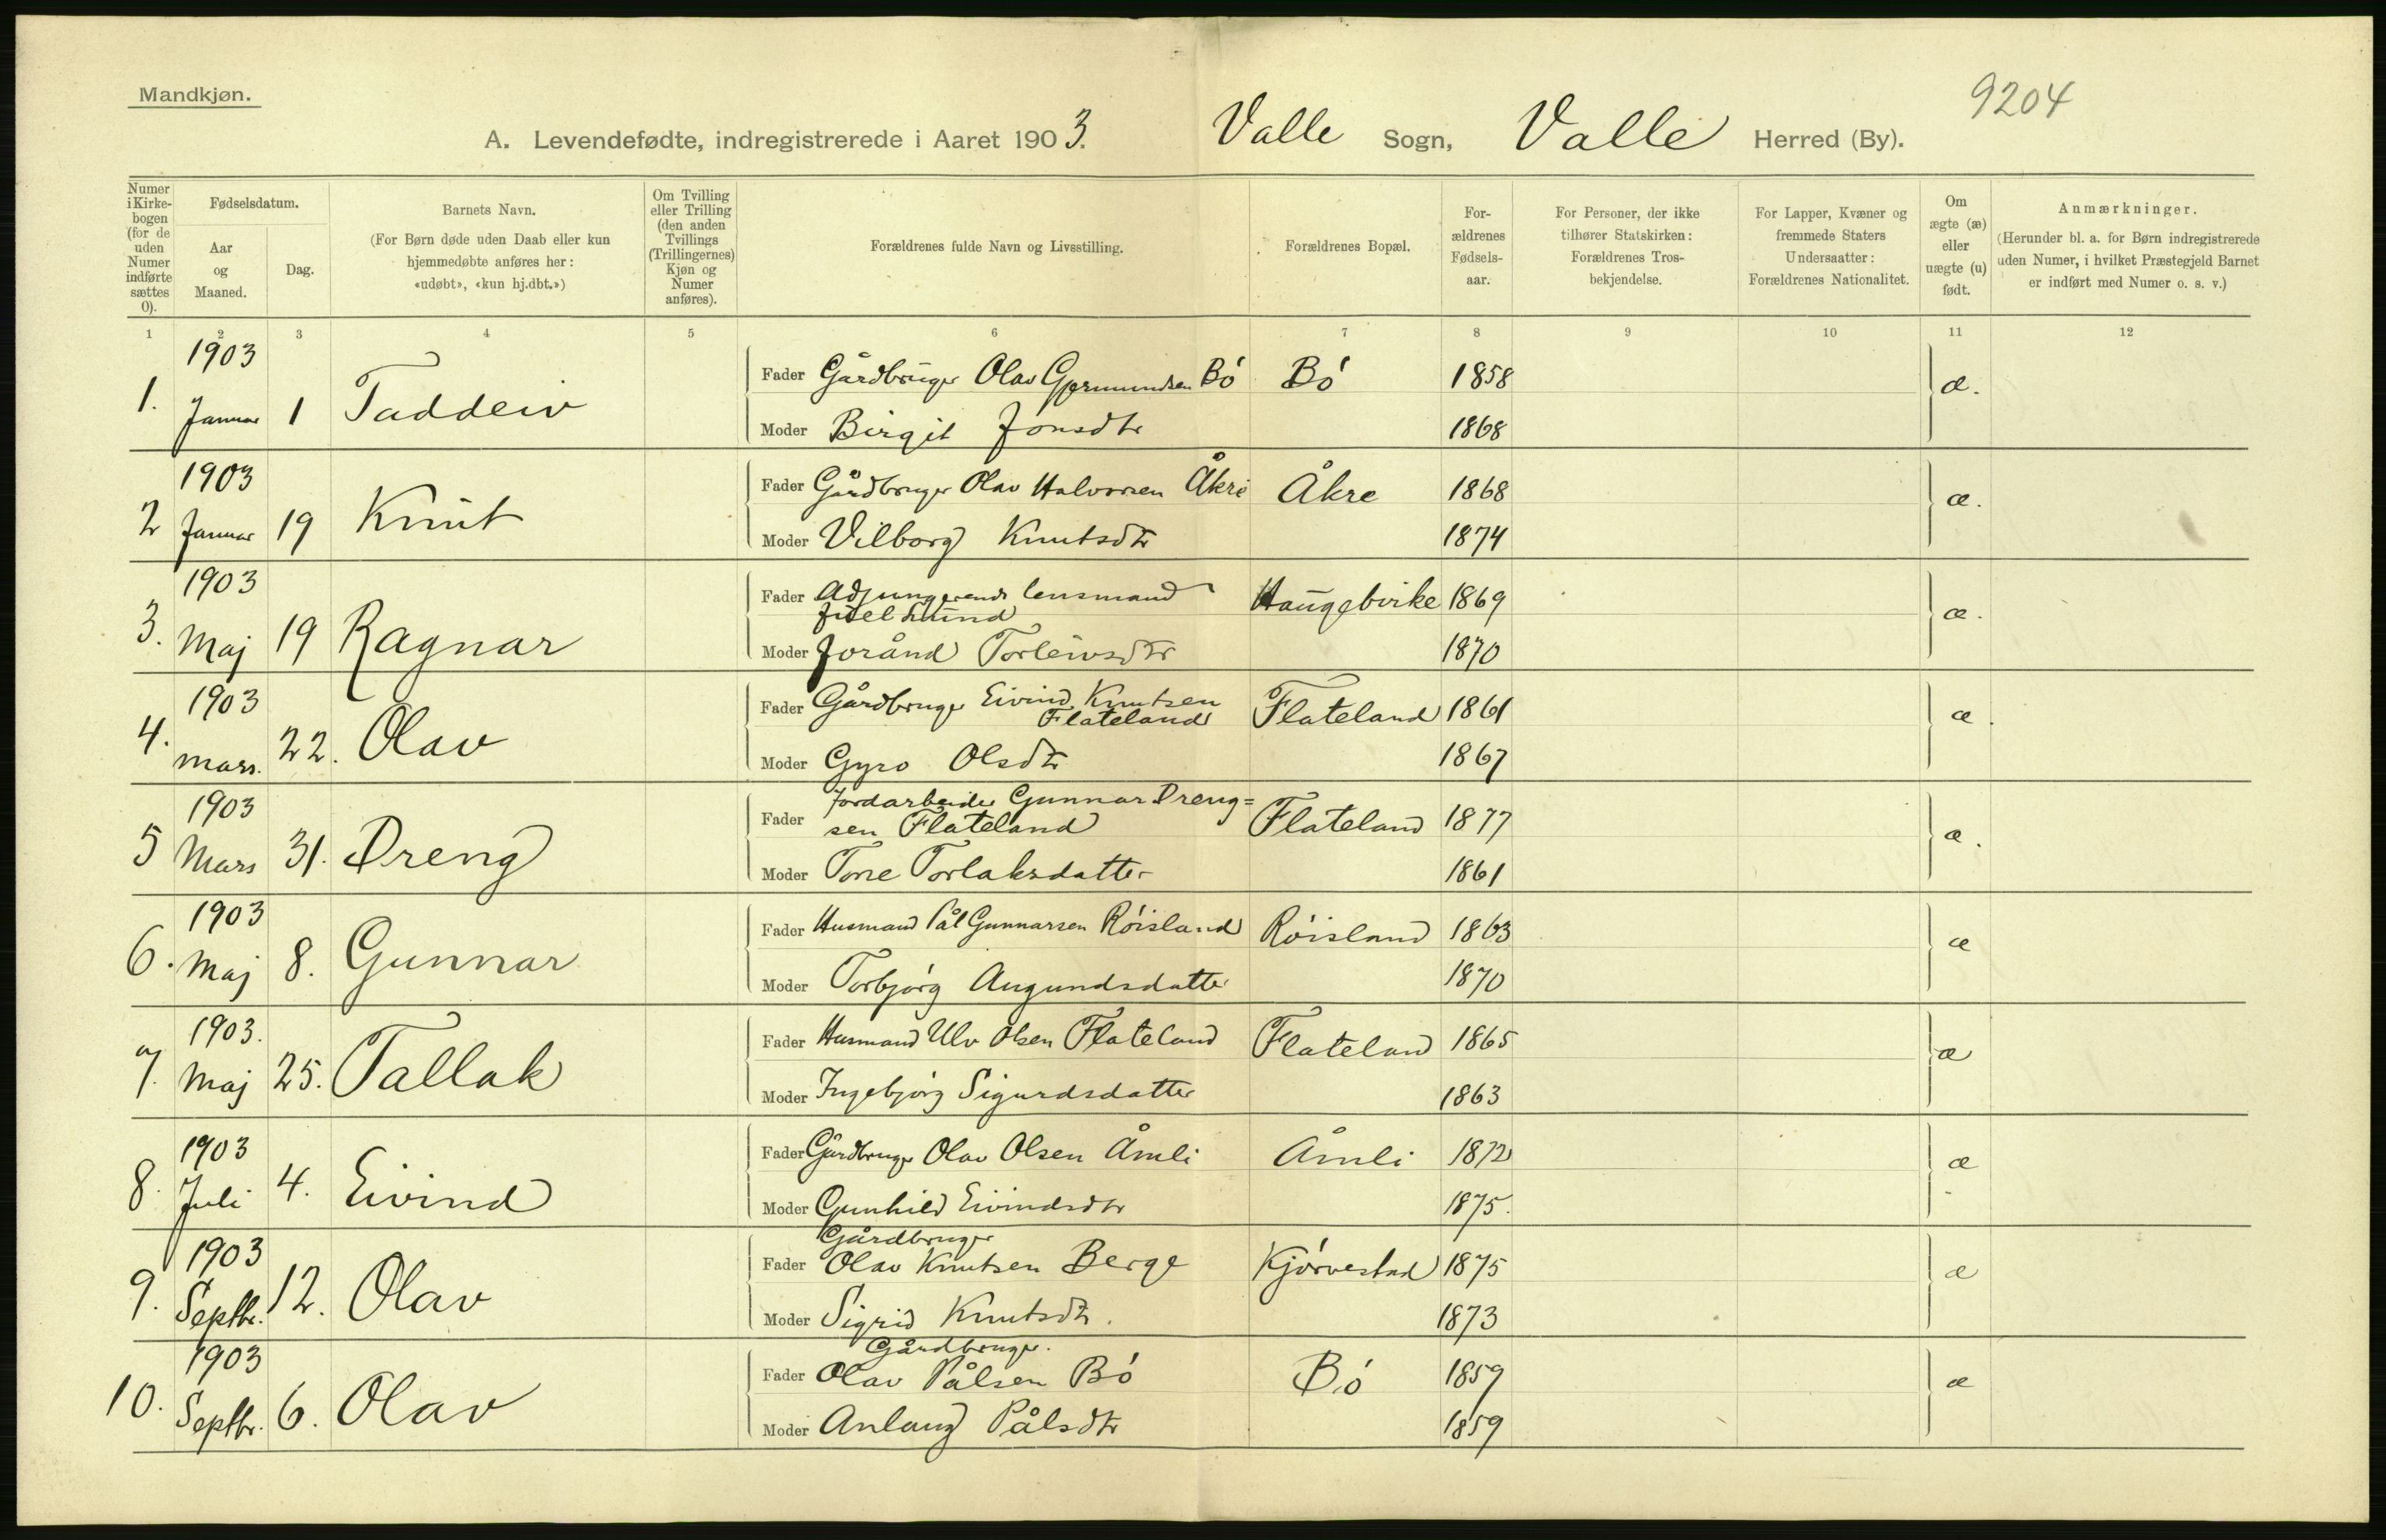 Mandkjøn.
9204
A. Levendefødte, indregistrerede i Aaret 1903. Valle Sogn, Valle Herred (By).
Numer i Kirkebogen (for de uden Numer indførte sættes 0).
Fødselsdatum.
Aar og Maaned.
Dag.
Barnets Navn.
(For Børn døde uden Daab eller kun hjemmedøbte anføres her: «udøbt», «kun hj.dbt.»)
Om Tvilling eller Trilling (den anden Tvillings (Trillingernes) Kjøn og Numer anføres).
Forældrenes fulde Navn og Livsstilling.
Forældrenes Bopæl.
For-ældrenes Fødsels-aar.
For Personer, der ikke tilhører Statskirken: Forældrenes Tros-bekjendelse.
For Lapper, Kvæner og fremmede Staters Undersaatter: Forældrenes Nationalitet.
Om ægte (æ) eller uægte (u) født.
Anmærkninger.
(Herunder bl. a. for Børn indregistrerede uden Numer, i hvilket Præstegjeld Barnet er indført med Numer o. s. v.)
1 2 3 4 5 6 7 8 9 10 11 12
1. 1903 Januar 1 Taddeiv Fader Gårdbruger Olav Gjermundsen Bó Bó 1858 æ.
Moder Birgit Jonsdtr 1868
2 1903 Januar 19 Knut Fader Gårdbruger Olav Halvorsen Åkre Åkre 1868 æ.
Moder Vilborg Knutsdtr 1874
3. 1903 Maj 19 Ragnar Fader Adjungerende lensmand Haugebirke 1869 æ.
Fidel Lund
Moder Jorånd Torleivsdtr 1870
4. 1903 Mars. 22. Olav Fader Gårdbruger Eivind Knutsen Flateland 1861 æ.
Flateland
Moder Gyro Olsdtr 1867
5 1903 Mars 31. Dreng Fader Jordarbeider Gunnar Dreng=
sen Flateland Flateland 1877 æ.
Moder Tone Torlaksdatter 1861
6. 1903 Maj 8. Gunnar Fader Husmand Pål Gunnarsen Róisland Róisland 1863 æ
Moder Torbjórg Augundsdatter 1870
7. 1903. Maj 25. Tallak Fader Husmand Ulv Olsen Flateland Flateland 1865 æ
Moder Ingebjórg Sigurdsdatter 1863
8. 1903 Juli 4. Eivind Fader Gårdbruger Olav Olsen Åmli Åmli 1872 æ
Moder Gunhild Eivindsdtr 1875.
Gårdbruger
9. 1903 Septbr. 12. Olav Fader Olav Knutsen Berge Kjórvestad 1875 æ
Moder Sigrid Knutsdtr. 1873
Gårdbruger.
10. 1903 Septbr. 6. Olav Fader Olav Pålsen Bó Bó 1859 æ
Moder Anlaug Pålsdtr 1859